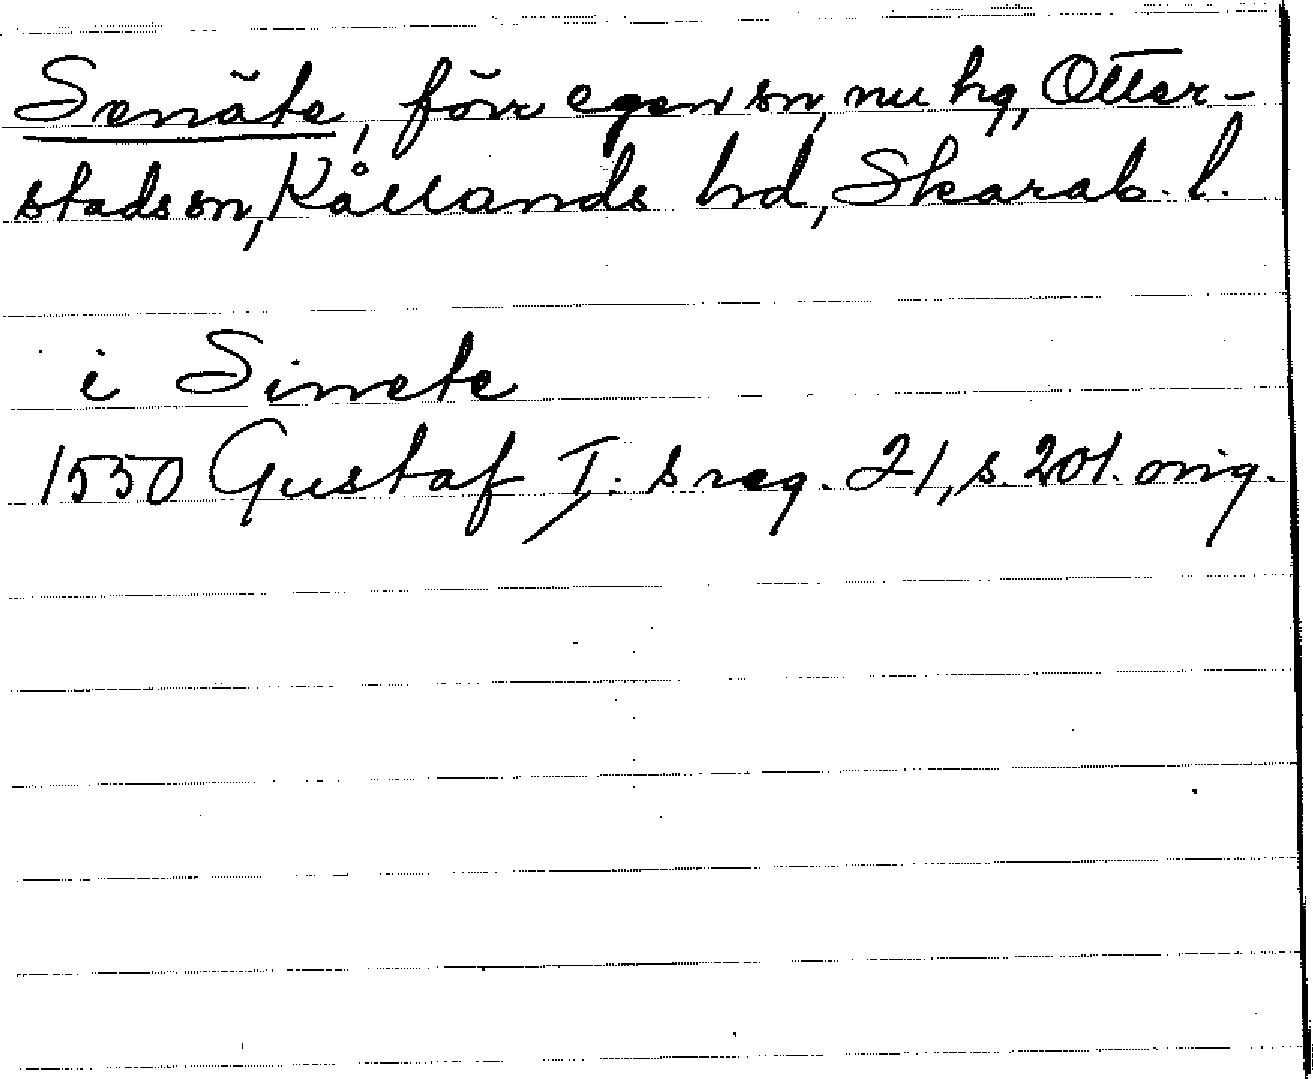 Senäte, förr egen sn, nu hg, Otter-
stads sn, Kållands hd, Skarab. l.
i Sinete
1550 Gustaf I:s reg. 21, s. 201. orig.